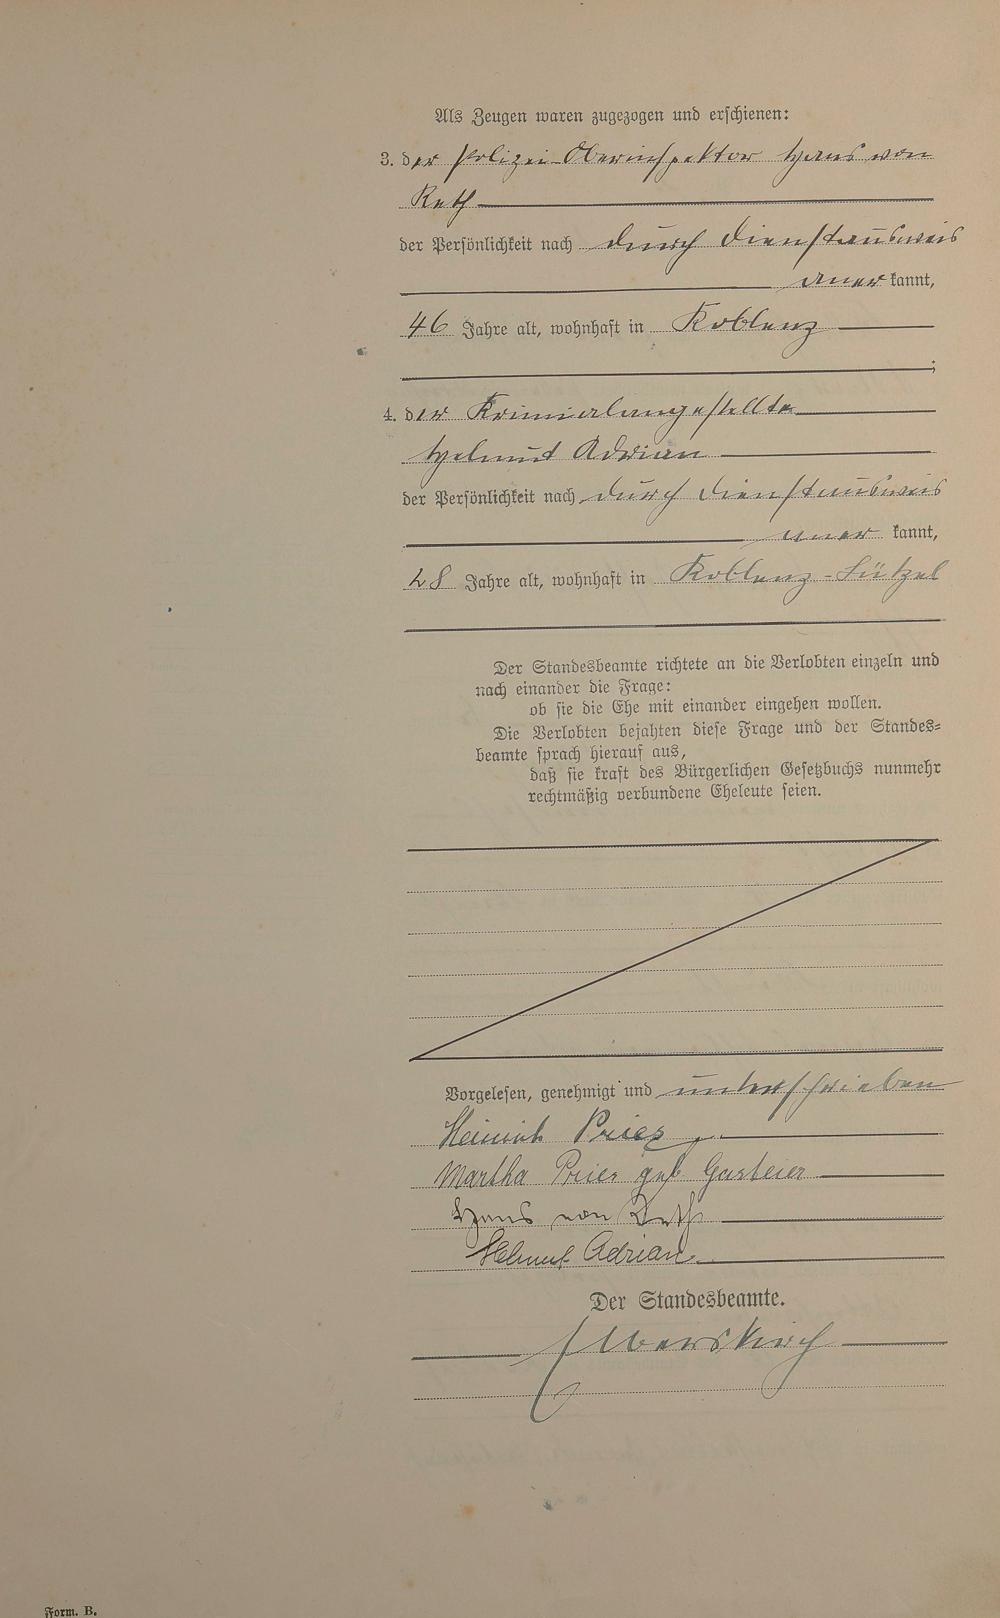 Als Zeugen waren zugezogen und erschienen:
3. der Polizei-Oberinspektor Hans von
Reth
der Persönlichkeit nach durch Dienstausweis
anerkannt,
46 Jahre alt, wohnhaft in Koblenz
;
4. der Kriminalangestellte
Helmut Adrian
der Persönlichkeit nach durch Dienstausweis
anerkannt,
28 Jahre alt, wohnhaft in Koblenz-Lützel
Der Standesbeamte richtete an die Verlobten einzeln und
nach einander die Frage:
ob sie die Ehe mit einander eingehen wollen.
Die Verlobten bejahten diese Frage und der Standes-
beamte sprach hierauf aus,
daß sie kraft des Bürgerlichen Gesetzbuchs nunmehr
rechtmäßig verbundene Eheleute seien.
Vorgelesen, genehmigt und unterschrieben
Heinrich Pries
Martha Pries geb
Hans von Reth
Helmut Adrian
Der Standesbeamte.
Form. B.